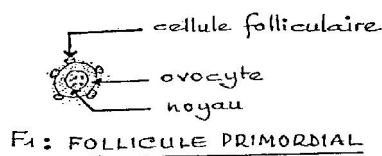 cellule folliculaire
ovocyte
noyau
F1 : FOLLICULE PRIMORDIAL